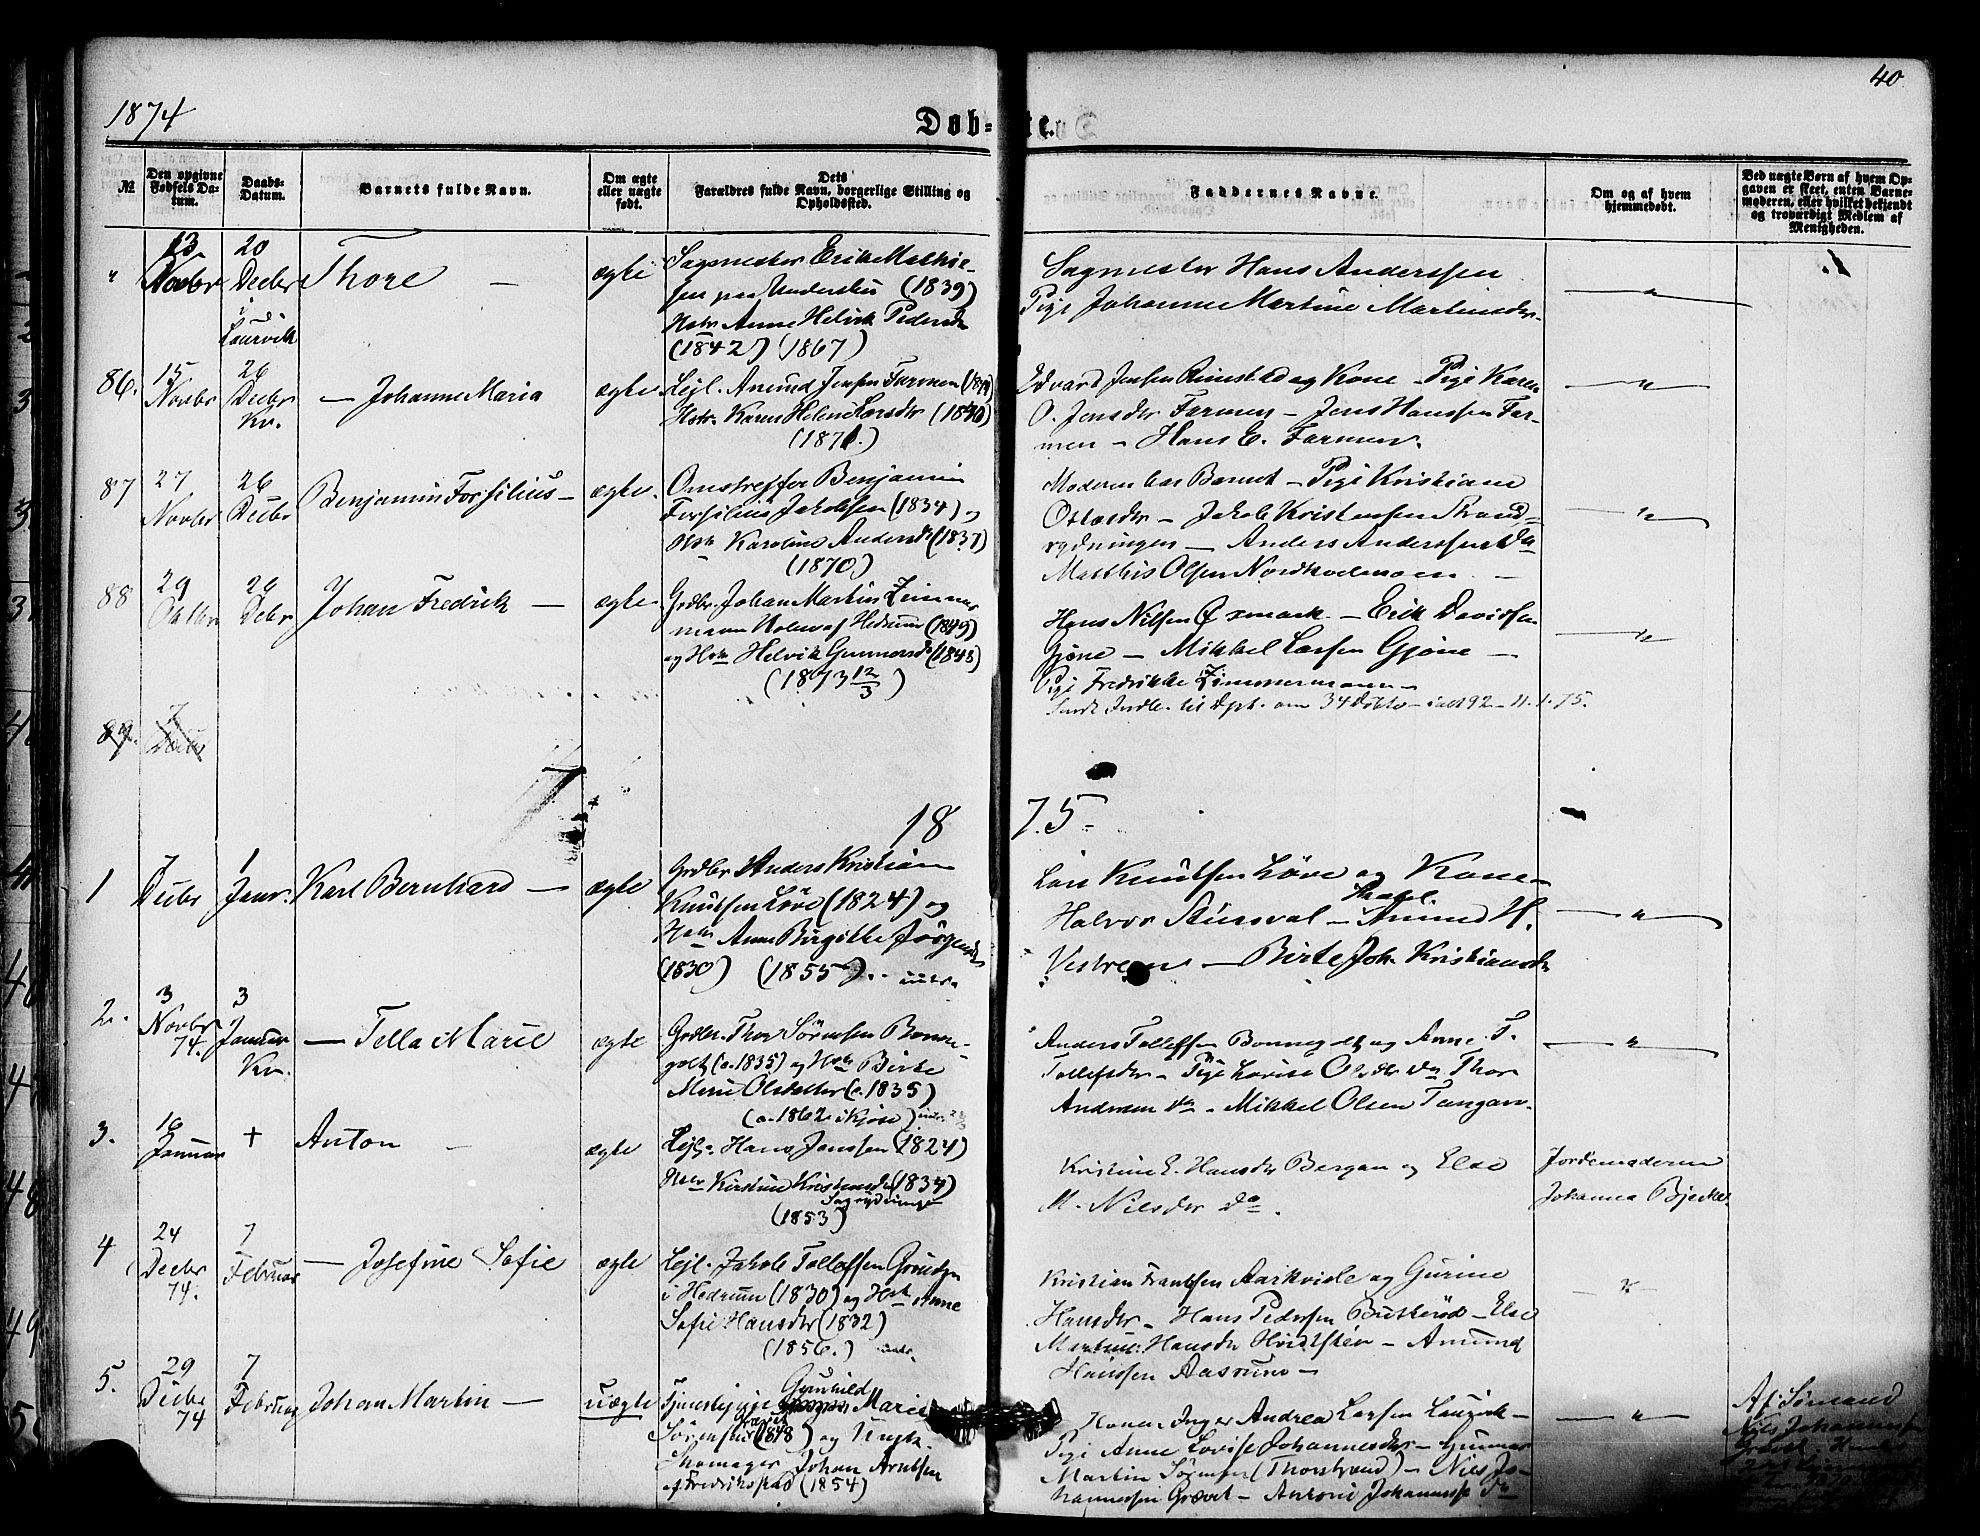 1874
40
Døb-
te.
№
Den opgivne Fødsels Datum.
Daabs-Datum.
Barnets fulde Navn.
Om ægte eller uægte født.
Dets Forældres fulde Navn, borgerlige Stilling og Opholdssted.
Faddernes Navne.
Om og af hvem hjemmedøbt.
Ved uægte Børn af hvem Opgaven er skeet, enten Barnemoderen, eller hvilket bekjendt og troværdigt Medlem af Menigheden.
" 13 Novbr 20 Decbr i Laurvik Thore — ægte
Sagmester Erik Mathie-
sen paa (1839)
Hstr Anne Helvik Pedersdr
(1842) (1867)
Sagmester Hans Anderssen
Pige Johanne Martine Martinsdr.
— " —
86. 15 Novbr 26 Decbr Kv. — Johanne Maria ægte
Lejl. Amund Jensen Farmen
Hstr. Karen Helene Larsdr
(1871.)
Edvard Jensen Rimstad og Kone — Pige Karen
O. Jensdr Farmen — Jens Hanssen Far-
men — Hans E. Farmen.
— " —
87 27 Novbr 26 Decbr Benjamin Forsilius — ægte.
Omstreifer Benjamin
Forsilius Jakobsen (1834) og
Hstr Karoline Andersdr (1837)
(1870.)
Moderen bar Barnet — Pige Kristiane
Ottersdr — Jakob Kristensen Strand-
rydningen — Anders Anderssen Do
Matthis Olsen —
— " —
88 29 Oktbr 26 Decbr Johan Fredrik — ægte.
Grdbr. Johan Martin Zimmer
mann Holm af Hedrum (1849)
og Hstr Helvik Gunnersdr (1843)
(1873 12/3)
Hans Nilsen Øxmark — Erik Davidsen
Gjøne — Mikkel Larsen Gjøne —
Pige Fredrikke Zimmermann —
Sendt Indb. til Dpt. om 34 Døbte — 92 — 11.1.75.
— " —
89. 7 Decbr
18
75.
1 7 Decbr 1 Janr. Karl Bernhard — ægte
Grdbr Anders Kristian
Knutsen Løve (1824) og
Hstr Anne Birgitte Jörgensdr
(1830) (1855)
Lars Knutsen Løve og Kone —
Halvor — Amund H.
— Birte Joh. Kristiansdr
— " —
2. 3 Novbr 74. 3 Januar Kv. — Tella Marie ægte
Grdbr. Thor Sörensen Bonne-
golt (c. 1835) og Hstr Birte
Marie Olsdatter (c. 1835)
(c. 1862 i Kjose)
Anders Tollefsen Bonnegolt og Anne T.
Tollefsdr — Pige Lovise Olsdr Do Thor
Andersen Do — Mikkel Olsen Tangen.
— " —
3. 16 Januar + Anton — ægte
Lejl. Hans Jenssen (1824)
Hstr Kirstine Kristensdr (1834)
Sagrydningen
(1853)
Kristine E. Hansdr Bergan og Else
M. Nilsdr Do.
Jordemoderen
Johanna
4 24 Decbr 74. 7 Februar — Josefine Sofie ægte
Lejl. Jakob Tollefsen
i Hedrum (1830) og Hstr Anne
Sofie Hansdr (1832)
(1856.)
Kristian Frantsen Aarkvisle og Gurine
Hansdr — Hans Pedersen — Else
Martine Hansdr — Amund
Hanssen Aasrum —
— " —
5. 29 Decbr 74 7 Februar Johan Martin — uægte
Tjenestepige Gunhild Marie
Sørensen (1848) og Ungk.
Skomager Johan Arntsen
af Fredrikstad (1854)
Kone Inger Andrea Larsen Laurvik —
Pige Anne Lovise Johannesdr — Gunnar
Martin Sörensen (Thorstrand) — Nils Jo-
hannessen Grævet — Antoni Johannessen Do
— " —
Af Sømand
Nils Johannessen